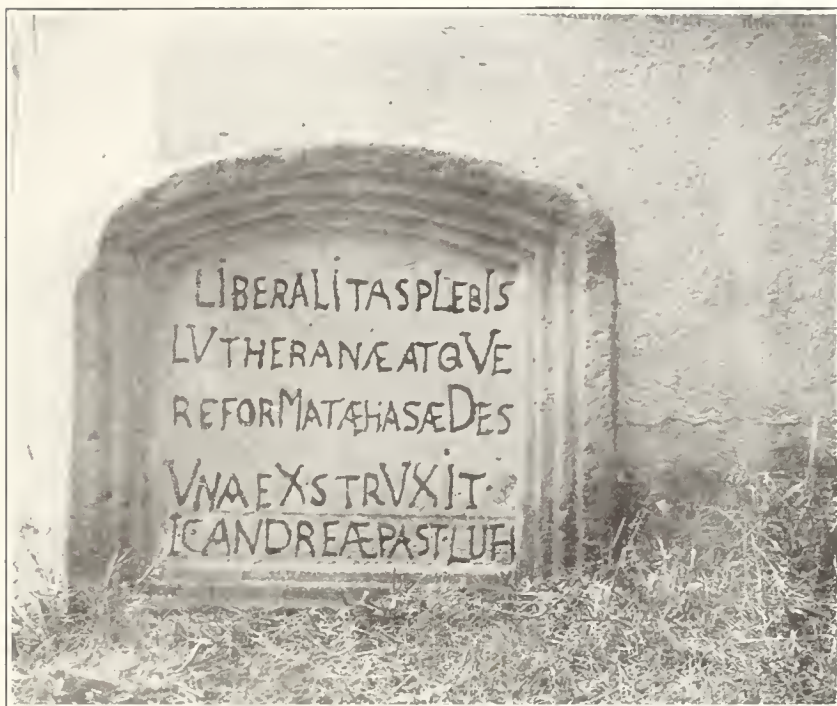 LİBERALİTASPLEBIS
LVTHERANÆATQVE
REFORMATÆHASÆDES
VNAEX·STRVXİT·
IC·ANDREÆPAST·LUTH